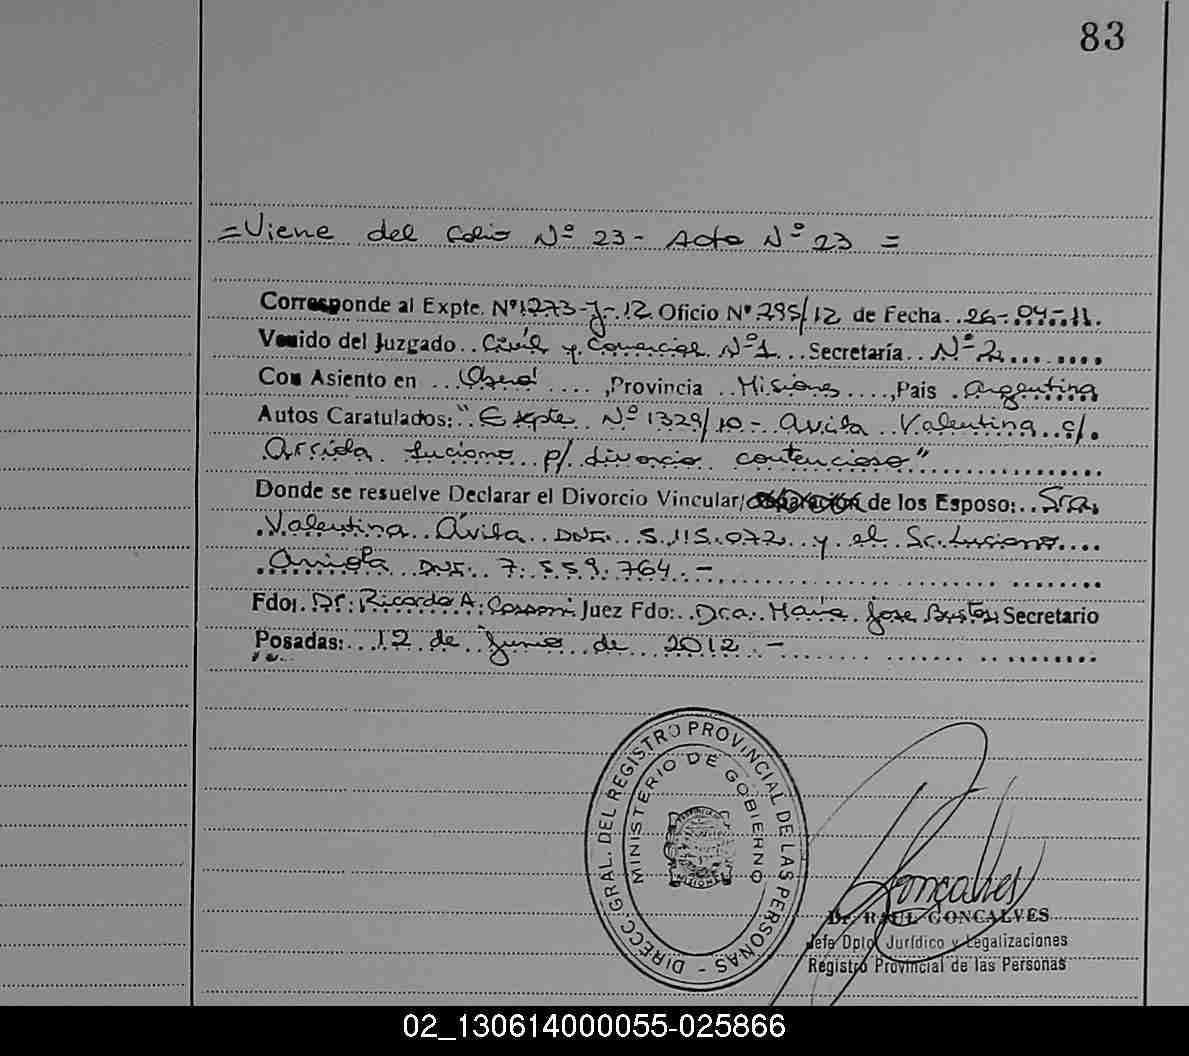 83
=Viene del Folio Nº 23- Acta Nº 23 =
Corresponde al Expte. Nº 1273-J-12 Oficio Nº 295/12 de Fecha..26-04-11.
Venido del Juzgado..Civil y Comercial Nº1...Secretaría..Nº 2...
Con Asiento en ...Oberá...,Provincia Misiones...,Pais .Argentina
Autos Caratulados:"Expte Nº 1329/10- Avila Valentina c/.
Arriola Luciano p/ divorcio contencioso"
Donde se resuelve Declarar el Divorcio Vincular/ de los Esposo:..Sra.
Valentina Ávila DNI. 5.115.072 y el Sr. Luciano
Arriola DNI. 7.559.764.-
Fdo: Dr. Ricardo A. Juez Fdo:..Dra. María Jose Bustos Secretario
Posadas:...12 de Junio de 2012.-
DIRECC. GRAL. DEL REGISTRO PROVINCIAL DE LAS PERSONAS -
MINISTERIO DE GOBIERNO
MISIONES
Goncalves
Dr. RAUL GONCALVES
Jefe Dpto. Jurídico y Legalizaciones
Registro Provincial de las Personas
02_130614000055-025866